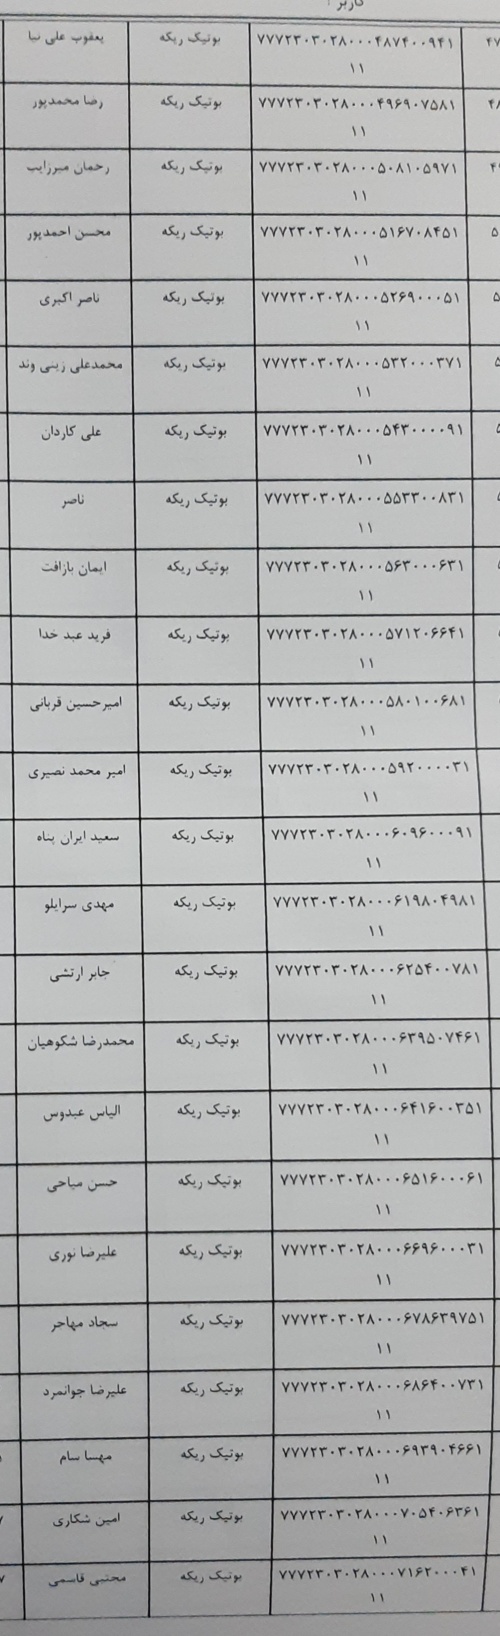 کاربر :
۴۷ ۷۷۷۲۳۰۳۰۲۸۰۰۰۴۸۷۴۰۰۹۴۱ بوتیک ریکه یعقوب علی نیا
۱۱
۷۷۷۲۳۰۳۰۲۸۰۰۰۴۹۶۹۰۷۵۸۱ بوتیک ریکه رضا محمدپور
۱۱
۷۷۷۲۳۰۳۰۲۸۰۰۰۵۰۸۱۰۵۹۷۱ بوتیک ریکه رحمان میرزایب
۱۱
۷۷۷۲۳۰۳۰۲۸۰۰۰۵۱۶۷۰۸۴۵۱ بوتیک ریکه محسن احمدپور
۱۱
۷۷۷۲۳۰۳۰۲۸۰۰۰۵۲۶۹۰۰۰۵۱ بوتیک ریکه ناصر اکبری
۱۱
۷۷۷۲۳۰۳۰۲۸۰۰۰۵۳۲۰۰۰۳۷۱ بوتیک ریکه محمدعلی زینی وند
۱۱
۷۷۷۲۳۰۳۰۲۸۰۰۰۵۴۳۰۰۰۰۹۱ بوتیک ریکه علی کاردان
۱۱
۷۷۷۲۳۰۳۰۲۸۰۰۰۵۵۳۳۰۰۸۳۱ بوتیک ریکه ناصر
۱۱
۷۷۷۲۳۰۳۰۲۸۰۰۰۵۶۳۰۰۰۶۳۱ بوتیک ریکه ایمان بازافت
۱۱
۷۷۷۲۳۰۳۰۲۸۰۰۰۵۷۱۲۰۶۶۴۱ بوتیک ریکه فرید عبد خدا
۱۱
۷۷۷۲۳۰۳۰۲۸۰۰۰۵۸۰۱۰۰۶۸۱ بوتیک ریکه امیرحسین قربانی
۱۱
۷۷۷۲۳۰۳۰۲۸۰۰۰۵۹۲۰۰۰۰۳۱ بوتیک ریکه امیر محمد نصیری
۱۱
۷۷۷۲۳۰۳۰۲۸۰۰۰۶۰۹۶۰۰۰۹۱ بوتیک ریکه سعید ایران پناه
۱۱
۷۷۷۲۳۰۳۰۲۸۰۰۰۶۱۹۸۰۴۹۸۱ بوتیک ریکه مهدی سرایلو
۱۱
۷۷۷۲۳۰۳۰۲۸۰۰۰۶۲۵۴۰۰۷۸۱ بوتیک ریکه جابر ارتشی
۱۱
۷۷۷۲۳۰۳۰۲۸۰۰۰۶۳۹۵۰۷۴۶۱ بوتیک ریکه محمدرضا شکوهیان
۱۱
۷۷۷۲۳۰۳۰۲۸۰۰۰۶۴۱۶۰۰۳۵۱ بوتیک ریکه الیاس عبدوس
۱۱
۷۷۷۲۳۰۳۰۲۸۰۰۰۶۵۱۶۰۰۰۶۱ بوتیک ریکه حسن میاحی
۱۱
۷۷۷۲۳۰۳۰۲۸۰۰۰۶۶۹۶۰۰۰۳۱ بوتیک ریکه علیرضا نوری
۱۱
۷۷۷۲۳۰۳۰۲۸۰۰۰۶۷۸۶۳۹۷۵۱ بوتیک ریکه سجاد مهاجر
۱۱
۷۷۷۲۳۰۳۰۲۸۰۰۰۶۸۶۴۰۰۷۳۱ بوتیک ریکه علیرضا جوانمرد
۱۱
۷۷۷۲۳۰۳۰۲۸۰۰۰۶۹۳۹۰۴۶۶۱ بوتیک ریکه مهسا سام
۱۱
۷۷۷۲۳۰۳۰۲۸۰۰۰۷۰۵۴۰۶۳۶۱ بوتیک ریکه امین شکاری
۱۱
۷۷۷۲۳۰۳۰۲۸۰۰۰۷۱۶۲۰۰۰۴۱ بوتیک ریکه مجتبی قاسمی
۱۱